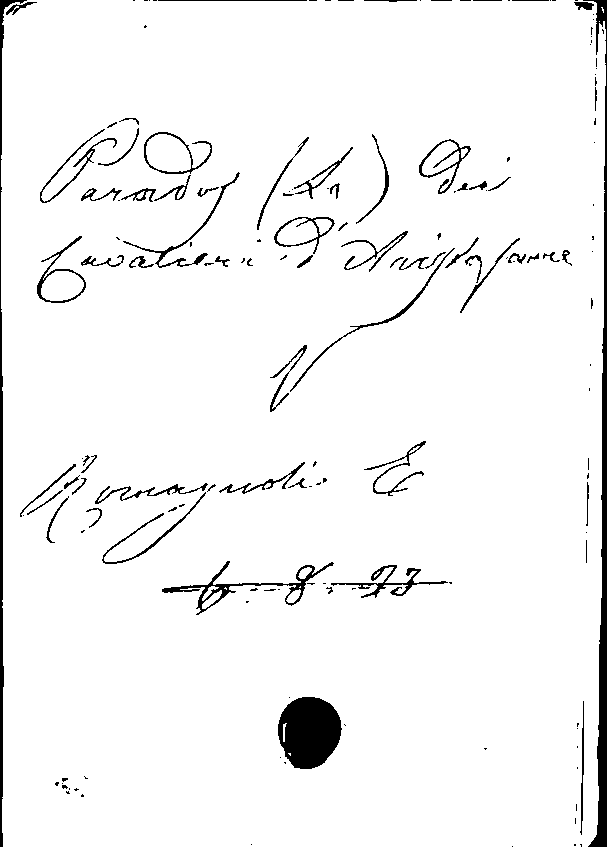 Parodos (La) dei
Cavalieri d'Aristofane
V
Romagnoli E
6. 8. 23